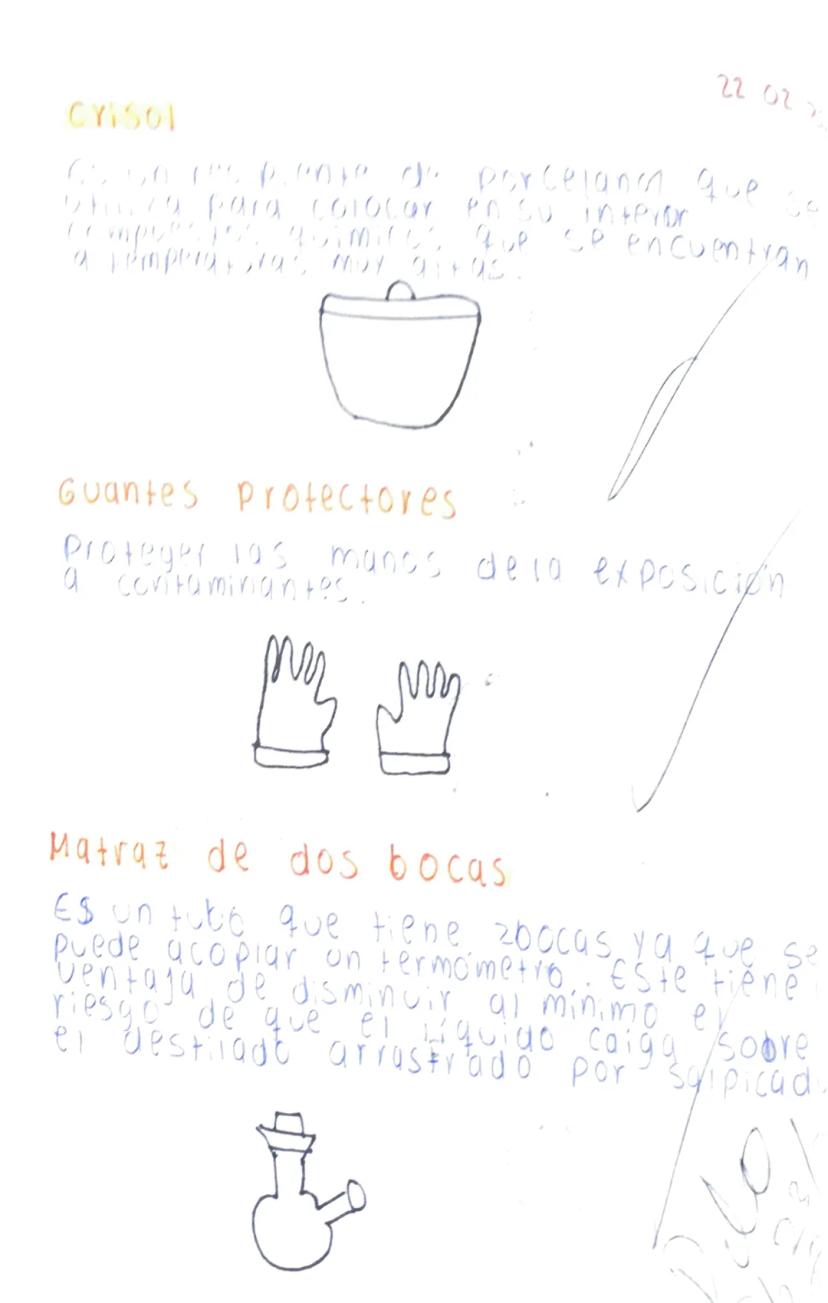 22 02
Crisol
Es un recipiente de porcelana que se
utiliza para colocar en su interior
compuestos químicos que se encuentran
a temperaturas muy altas.
Guantes Protectores
Proteger las manos de la exposición
a contaminantes.
Matraz de dos bocas
ES un tubo que tiene 2bocas, ya que se
puede acoplar un termómetro. Este tiene
ventaja de disminuir al mínimo el
riesgo de que el líquido caiga sobre
el destilado arrastrado por